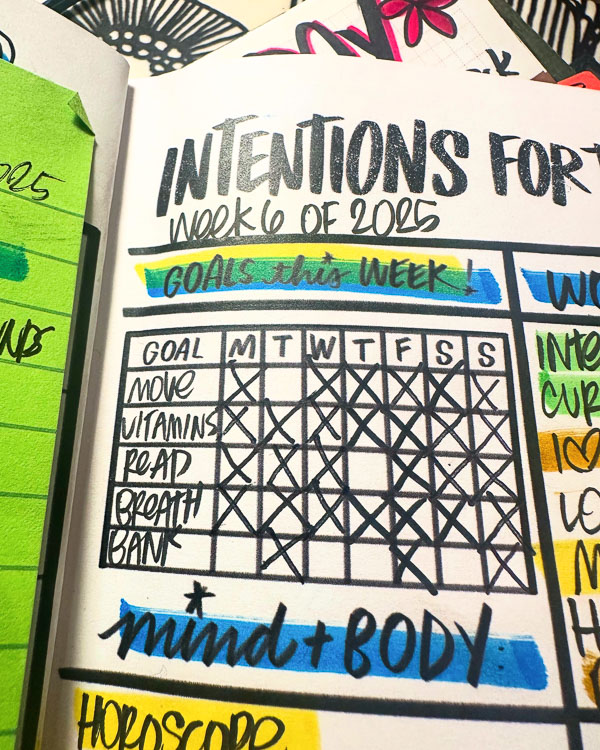 025
INTENTIONS FOR
Week 6 OF 2025
GOALS this WEEK!
WO
GOAL M T W T F S S
MOVE X X X X X X
VITAMINS X X X X X X X
READ X X X X X X
BREATH X X X X X X X
BANK X X X
INTE
CUR
I ♡
LO
M
H
mind + BODY
HOROSCOPE